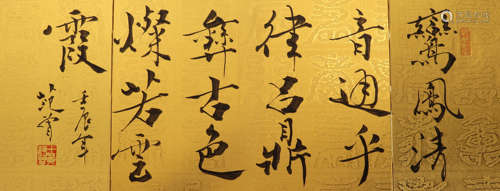 鸞鳳清
音通乎
律呂鼎
彝古色
燦若雲
霞
壬辰年
范曾